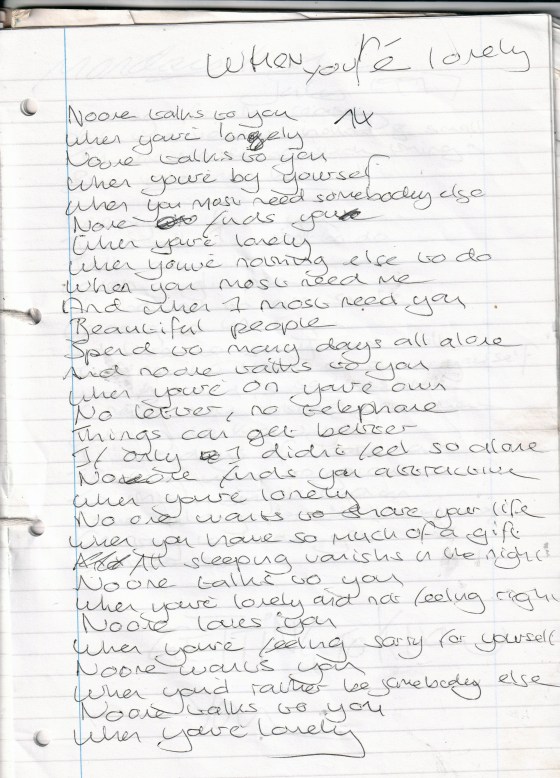 When you're lonely
14
Noone talks to you
when you're lonely
Noone talks to you
when you're by yourself
when you most need somebody else
None finds you
when you're lonely
when you've nothing else to do
when you most need me
And when I most need you
Beautiful people
Spend to many days all alone
And noone talks to you
when you're on you're own
No letter, no telephone
Things can get better
If only I didn't feel so alone
Noone finds you attractive
when you're lonely
No one wants to share your life
when you have so much of a gift
All sleeping vanishs in the night
Noone talks to you
when you're lonely and not feeling right
Noone loves you
when you're feeling sorry for yourself
Noone wants you
when you'd rather be somebody else
Noone talks to you
when you're lonely